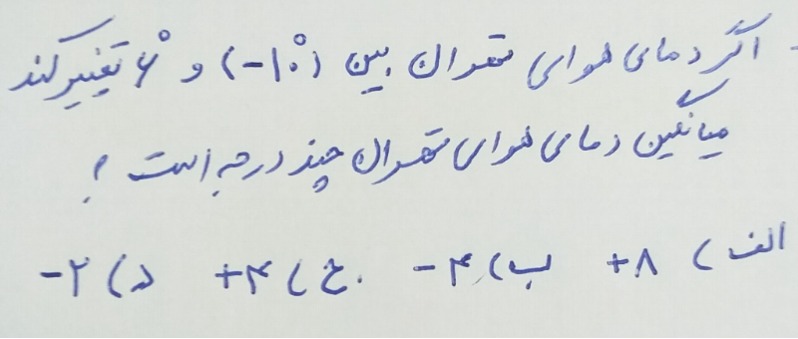 اگر دمای هوای تهران بین (-۱۰°) و ۶° تغییر کند
میانگین دمای هوای تهران چند درجه است ؟
الف) +۸ ب) -۴ ج) +۴ د) -۲